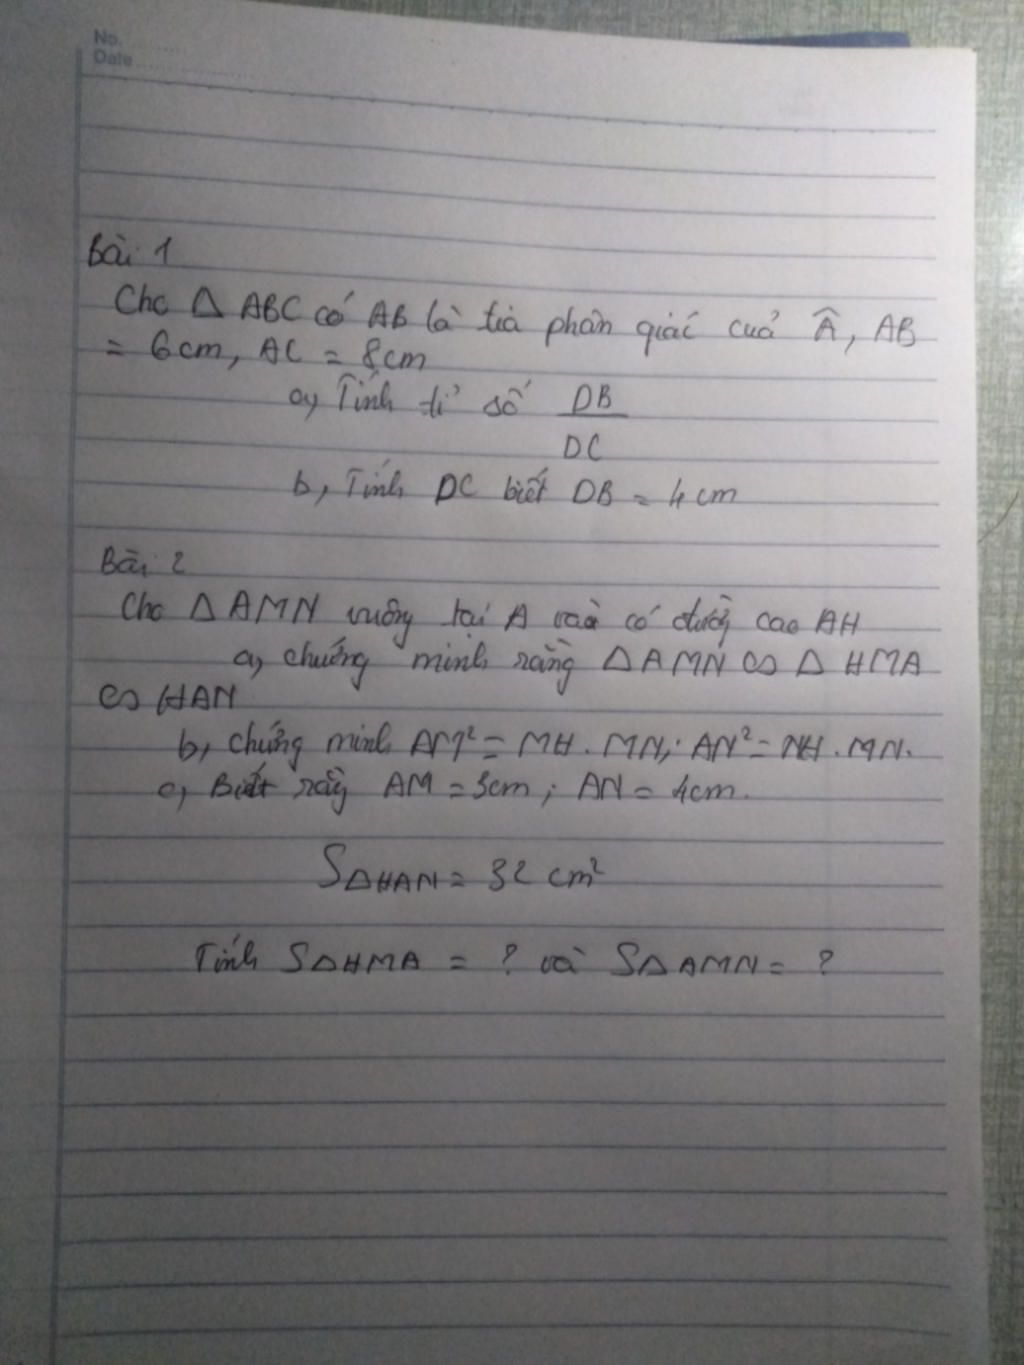 No.
Date
Bài 1
Cho Δ ABC có AB là tia phân giác cuả Â, AB
= 6cm, AC = 8cm
a, Tính tỉ số DB
DC
b, Tính DC biết DB = 4cm
Bài 2
Cho Δ AMN vuông tại A và có đường cao AH
a, chứng minh rằng Δ AMN ∽ Δ HMA
∽ HAN
b, chứng minh AM² = MH . MN; AN² = NH . MN.
c, Biết rằng AM = 3cm ; AN = 4cm.
SΔHAN = 32 cm²
Tính SΔHMA = ? và SΔAMN = ?